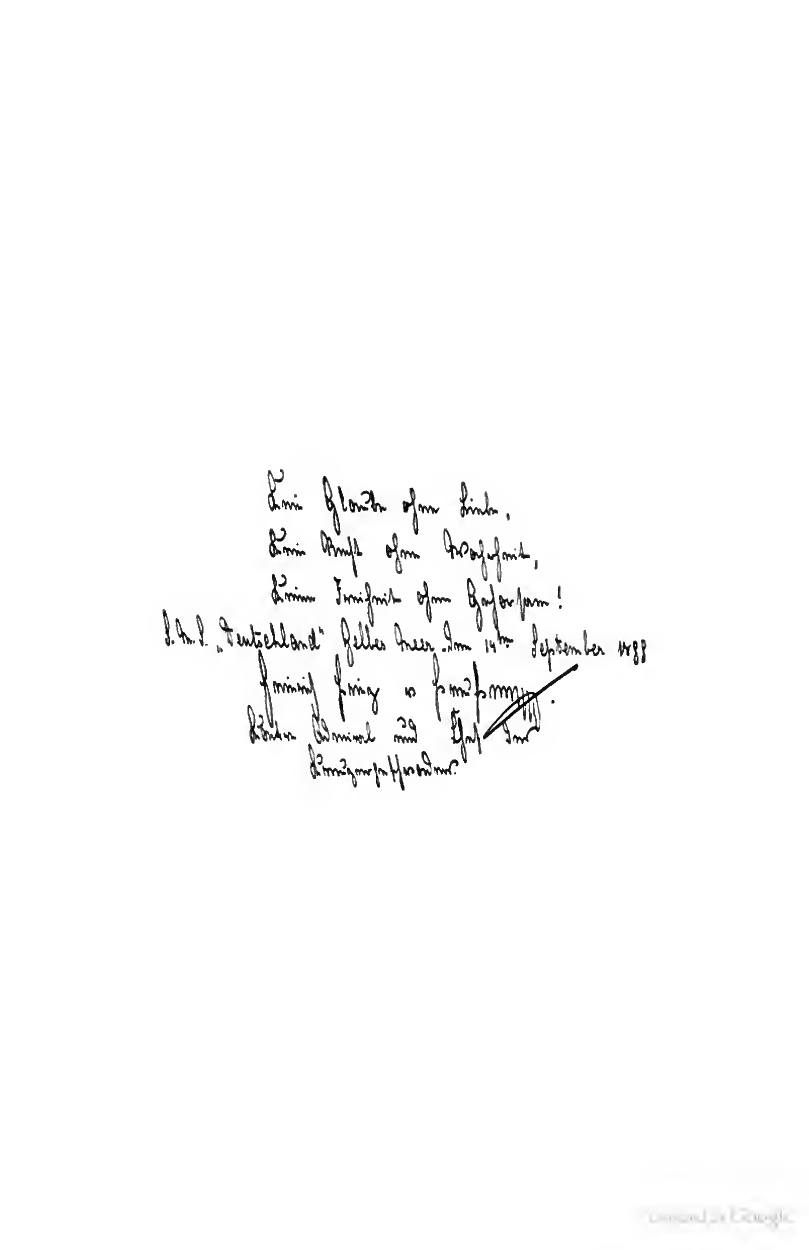 Kein Glaube ohne Liebe,
Kein ohne Wahrheit,
Keine Freiheit ohne Gehorsam!
S.M.S. „Deutschland“ Gelbes Meer. Den 14ten September
Heinrich Prinz v Preußen.
Kontre Admiral und Chef des
Kreuzergeschwaders.
Digitized by Google